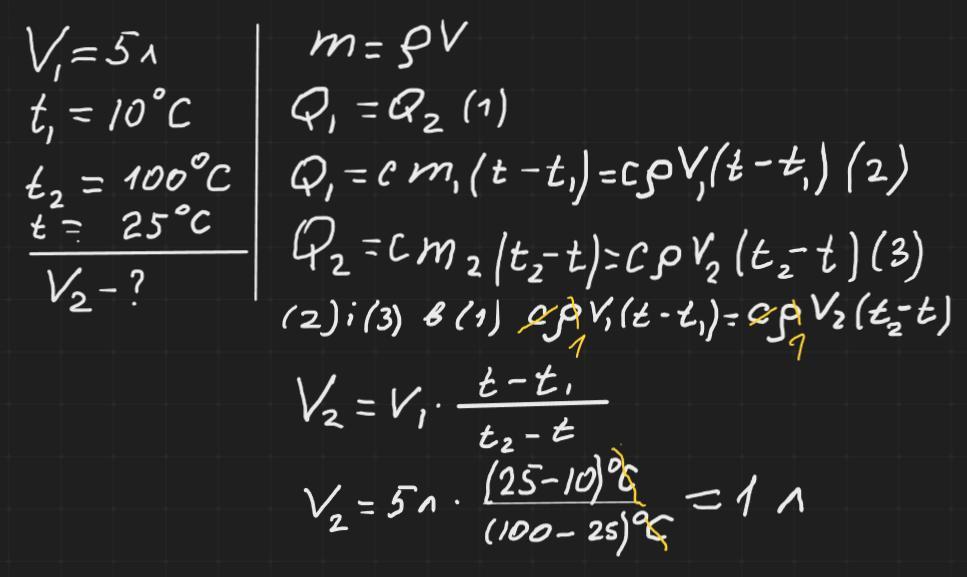 V₁ = 5л
t₁ = 10°C
t₂ = 100°C
t = 25°C
V₂ - ?
m = ρV
Q₁ = Q₂ (1)
Q₁ = cm₁(t - t₁) = cρV₁(t - t₁) (2)
Q₂ = cm₂(t₂ - t) = cρV₂(t₂ - t) (3)
(2) i (3) в (1) cρV₁(t - t₁) = cρV₂(t₂ - t)
1 1
V₂ = V₁ · (t - t₁)/(t₂ - t)
V₂ = 5л · (25 - 10)°C/(100 - 25)°C = 1 л